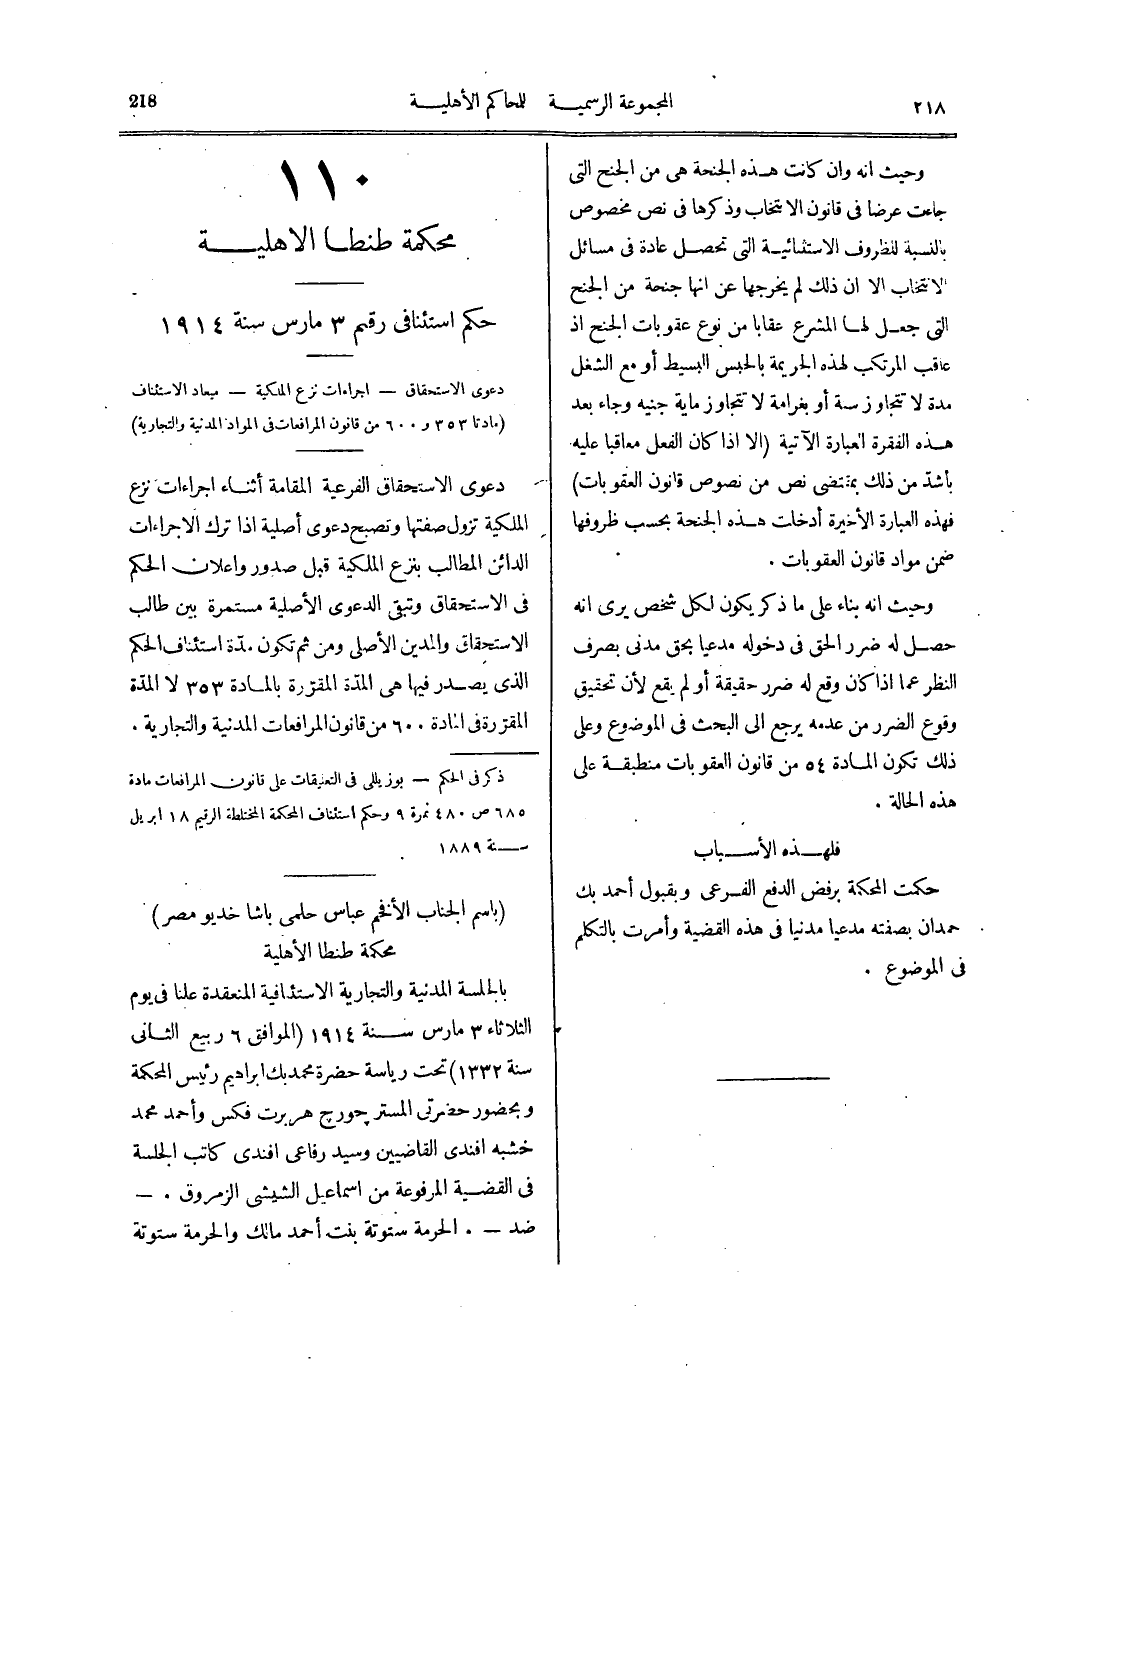 ٢١٨ المجموعة الرسمية للمحاكم الأهلية 218
وحيث انه وان كانت هذه الجنحة هى من الجنح التى
جاءت عرضا فى قانون الانتخاب وذكرها فى نص مخصوص
بالنسبة للظروف الاستثنائية التى تحصل عادة فى مسائل
الانتخاب الا ان ذلك لم يخرجها عن انها جنحة من الجنح
التى جعل لها المشرع عقابا من نوع عقوبات الجنح اذ
عاقب المرتكب لهذه الجريمة بالحبس البسيط أو مع الشغل
مدة لا تتجاوز سنة أو بغرامة لا تتجاوز ماية جنيه وجاء بعد
هذه الفقرة العبارة الآتية (الا اذا كان الفعل معاقبا عليه
بأشدّ من ذلك بمقتضى نص من نصوص قانون العقوبات)
فهذه العبارة الأخيرة أدخلت هذه الجنحة بحسب ظروفها
ضمن مواد قانون العقوبات .
وحيث انه بناء على ما ذكر يكون لكل شخص يرى انه
حصل له ضرر الحق فى دخوله مدعيا بحق مدنى بصرف
النظر عما اذا كان وقع له ضرر حقيقة أو لم يقع لأن تحقيق
وقوع الضرر من عدمه يرجع الى البحث فى الموضوع وعلى
ذلك تكون المادة ٥٤ من قانون العقوبات منطبقة على
هذه الحالة .
فلهذه الأسباب
حكمت المحكمة برفض الدفع الفرعى وبقبول أحمد بك
حمدان بصفته مدعيا مدنيا فى هذه القضية وأمرت بالتكلم
فى الموضوع .
١١٠
محكمة طنطا الاهلية
حكم استئنافى رقيم ٣ مارس سنة ١٩١٤
دعوى الاستحقاق — اجراءات نزع الملكية — ميعاد الاستئناف
(مادتا ٣٥٣ و ٦٠٠ من قانون المرافعات فى المواد المدنية والتجارية)
دعوى الاستحقاق الفرعية المقامة أثناء اجراءات نزع
الملكية تزول صفتها وتصبح دعوى أصلية اذا ترك الاجراءات
الدائن المطالب بنزع الملكية قبل صدور واعلان الحكم
فى الاستحقاق وتبقى الدعوى الأصلية مستمرة بين طالب
الاستحقاق والمدين الأصلى ومن ثم تكون مدّة استئناف الحكم
الذى يصدر فيها هى المدّة المقرّرة بالمادة ٣٥٣ لا المدّة
المقرّرة فى المادة ٦٠٠ من قانون المرافعات المدنية والتجارية .
ذكر فى الحكم — بوزيللى فى التعليقات على قانون المرافعات مادة
٦٨٥ ص ٤٨٠ نمرة ٩ وحكم استئناف المحكمة المختلطة الرقيم ١٨ ابريل
سنة ١٨٨٩
(باسم الجناب الأفخم عباس حلمى باشا خديو مصر)
محكمة طنطا الأهلية
بالجلسة المدنية والتجارية الاستئنافية المنعقدة علنا فى يوم
الثلاثاء ٣ مارس سنة ١٩١٤ (الموافق ٦ ربيع الثانى
سنة ١٣٣٢) تحت رياسة حضرة محمد بك ابراهيم رئيس المحكمة
وبحضور حضرتى المستر جورج هربرت فكس وأحمد محمد
خشبه افندى القاضيين وسيد رفاعى افندى كاتب الجلسة
فى القضية المرفوعة من اسماعيل الشيشى الزمروق . —
ضد — . الحرمة ستوتة بنت أحمد مالك والحرمة ستوتة